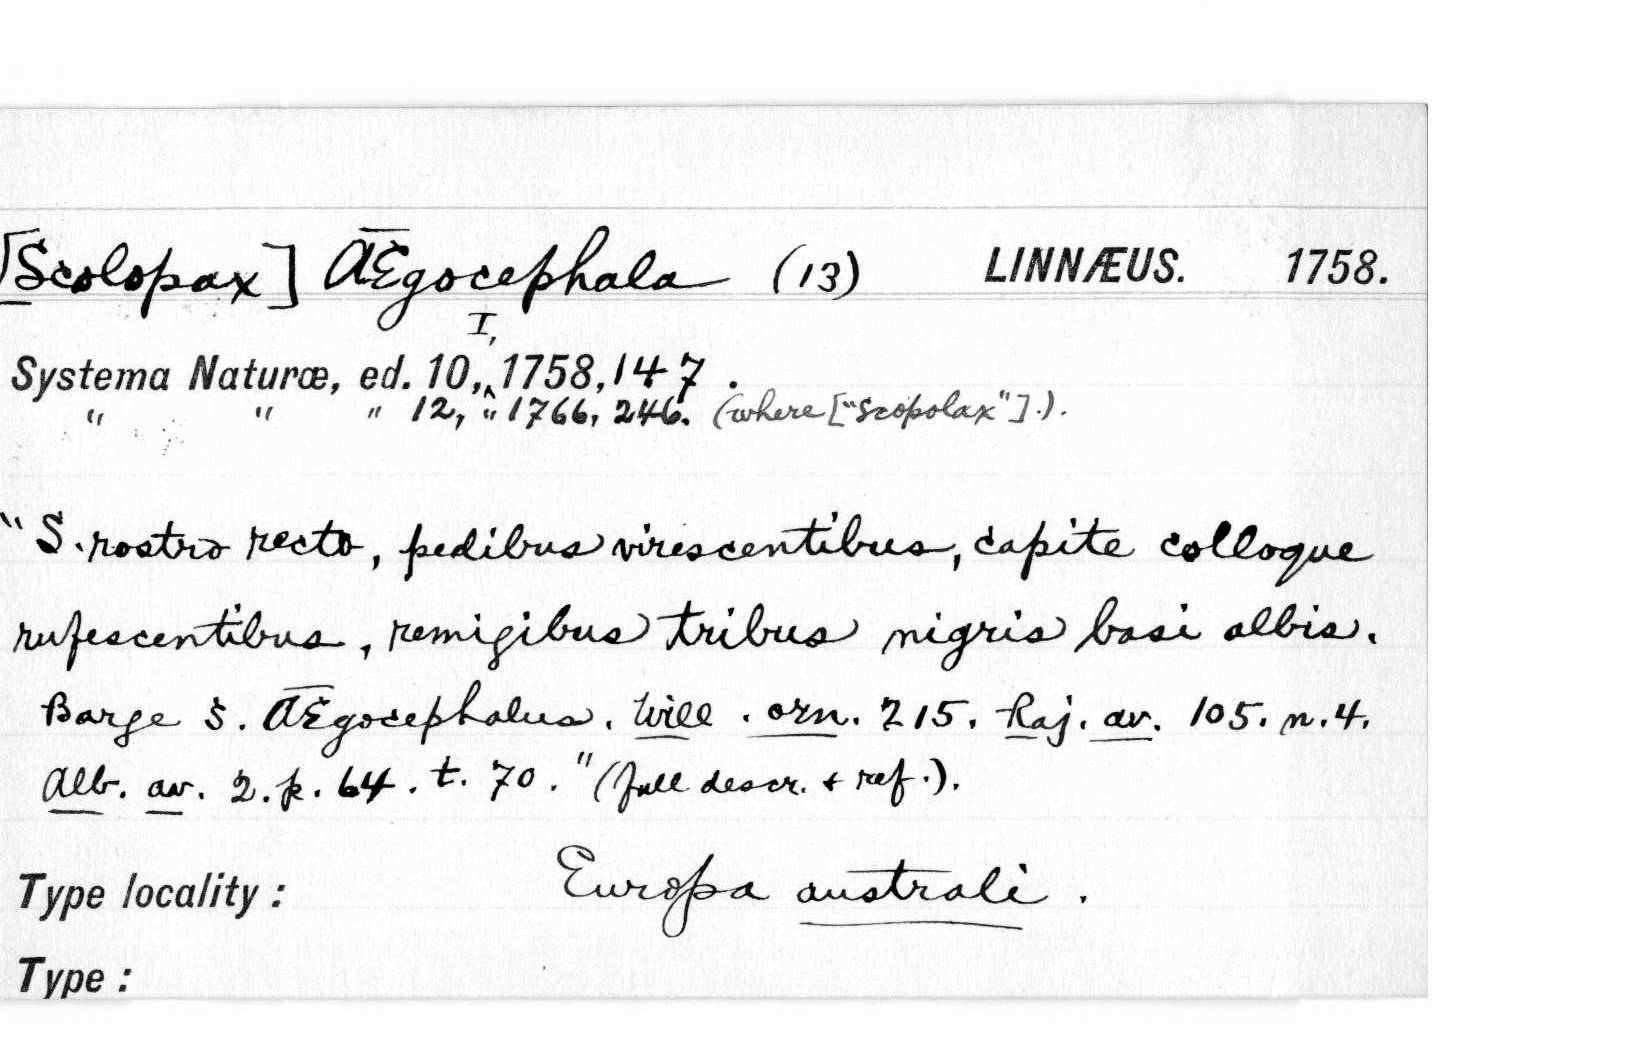 [Scolopax] Ægocephala (13) LINNÆUS. 1758.
Systema Naturæ, ed. 10, I, 1758, 147.
" " " 12, " 1766, 246. (where ["Scopolax"].).
"S. rostro recto, pedibus virescentibus, capite colloque
rufescentibus, remigibus tribus nigris basi albis.
Barge s. Ægocephalus. Will. orn. 215. Raj. av. 105. n.4.
Alb. av. 2. p. 64. t. 70." (full descr. & ref.).
Type locality: Europa australi.
Type: